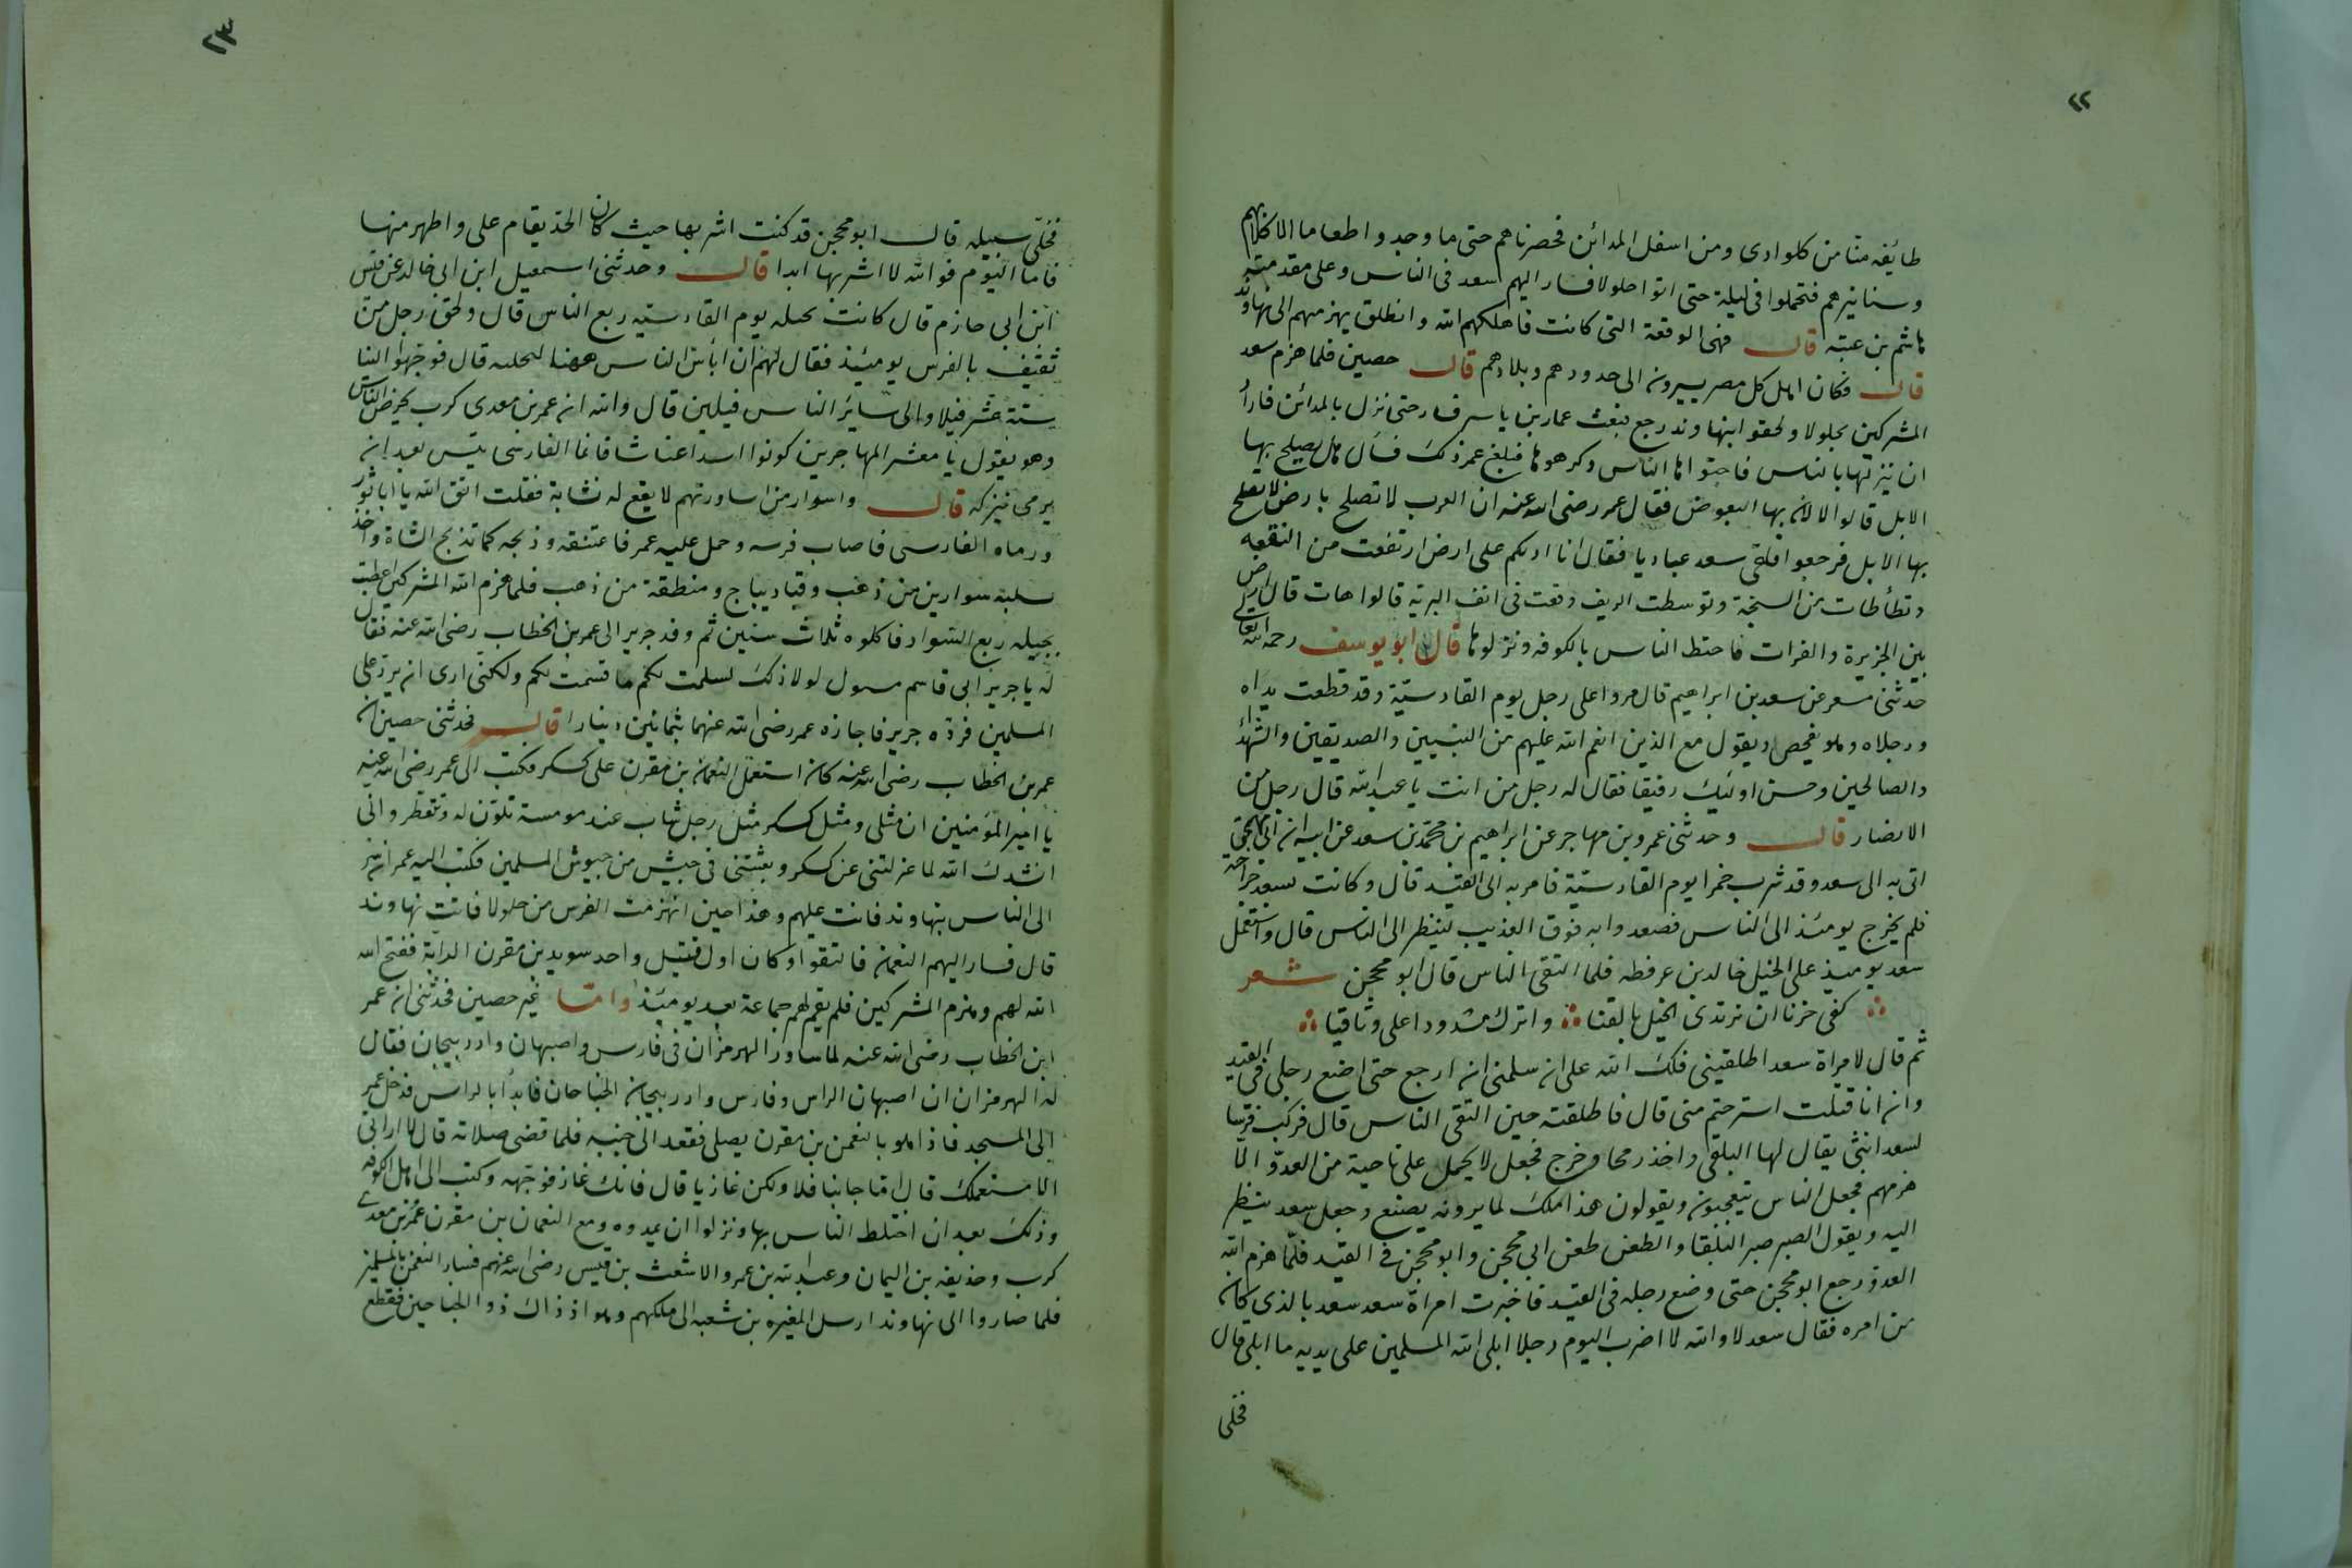 ٢٢
طائفه منا من كلوادى ومن اسفل المدائن فحصرناهم حتى ما وجدوا طعاما الا كلابهم
وسنانيرهم فتحملوا فى ليلة حتى اتوا جلولا فسار اليهم سعد فى الناس وعلى مقدمته
هاشم بن عتبه قال فهى الوقعة التى كانت فاهلكهم الله وانطلق يهزمهم الى نهاوند
قال فكان اهل كل مصر يسيرون الى حدودهم وبلادهم قال حصين فلما هزم سعد
المشركين بجلولا ولحقوا بنهاوند رجع فبعث عمار بن ياسر فسار حتى نزل بالمدائن فاراد
ان ينزلها بالناس فاجتواها الناس وكرهوها فبلغ عمر ذلك فسأل هل يصلح بها
الابل قالوا لا لان بها البعوض فقال عمر رضى الله عنه ان العرب لا تصلح بارض لا يصلح
بها الابل فرجعوا فلقى سعد عباديا فقال انا ادلكم على ارض ارتفعت من البقعه
وتطأطات من السبخة وتوسطت الريف وقعت فى انف البرية قالوا هات قال ارض
بين الجزيرة والفرات فاختط الناس بالكوفه ونزلوها قال ابو يوسف رحمه الله تعالى
حدثنى مسعر عن سعد بن ابراهيم قال مروا على رجل يوم القادسيّة وقد قطعت يداه
ورجلاه وهو يفحص ويقول مع الذين انعم الله عليهم من النبيين والصديقين والشهدا
والصالحين وحسن اولئك رفيقا فقال له رجل من انت يا عبد الله قال رجل من
الانصار قال وحدثنى عمرو بن مهاجر عن ابراهيم بن محمد بن سعد عن ابيه ان ابا محجن
اتى به الى سعد وقد شرب خمرا يوم القادسيّة فامر به الى القيد قال وكانت بسعد جراحة
فلم يخرج يومئذ الى الناس فصعدوا به فوق العذيب لينظر الى الناس قال واستعمل
سعد يوميذ على الخيل خالد بن عرفطه فلما التقى الناس قال ابو محجن شعر
كفى حزنا ان ترتدى الخيل بالقنا واترك مشدودا على وثاقيا
ثم قال لامراة سعد اطلقينى فلك الله على ان سلمنى ان ارجع حتى اضع رجلى فى القيد
وان انا قتلت استرحتم منى قال فاطلقته حين التقى الناس قال فركب فرسا
لسعد انثى يقال لها البلقى واخذ رمحا وخرج فجعل لا يحمل على ناحية من العدوّ الّا
هزمهم فجعل الناس يتعجبون ويقولون هذا ملك لما يرونه يصنع وجعل سعد ينظر
اليه ويقول الصبر صبر البلقا والطعن طعن ابى محجن وابو محجن فى القيد فلمّا هزم الله
العدوّ رجع ابو محجن حتى وضع رجله فى القيد فاخبرت امراة سعد سعد بالذى كان
من امره فقال سعد لا والله لا اضرب اليوم رجلا ابلى الله المسلمين على يديه ما ابلى قال
فخلى
٢٣
فخلّى سبيله قال ابو محجن قد كنت اشربها حيث كان الحدّ يقام على واطهر منها
فاما اليوم فوالله لا اشربها ابدا قال وحدثنى اسمعيل ابن ابى خالد عن قيس
ابن ابى حازم قال كانت بجيله يوم القادسيه ربع الناس قال ولحق رجل من
ثقيف بالفرس يومئذ فقال لهم ان بأس الناس ههنا لبجليه قال فوجهوا الينا
ستة عشر فيلا والى سائر الناس فيلين قال والله ان عمر بن معدى كرب يحرض الناس
وهو يقول يا معشر المهاجرين كونوا اسدا عناشا فانما الفارسى تيس بعد ان
يرمى نيزكه قال واسوار من اساورتهم لا يقع له نشابة فقلت اتق الله يا ابا ثور
ورماه الفارسى فاصاب فرسه وحمل عليه عمر فاعتنقه وذبحه كما تذبح الشاة واخذ
سلبه سوارين من ذهب وقبا ديباج ومنطقة من ذهب فلما هزم الله المشركين اعطيت
بجيله ربع السواد فاكلوه ثلاث سنين ثم وفد جرير الى عمر بن الخطاب رضى الله عنه فقال
له يا جرير انى قاسم مسول لولا ذلك لسلمت لكم ما قسمت لكم ولكنى ارى ان يرد على
المسلمين فرده جرير فاجازه عمر رضى الله عنهما بثمانين دينارا قال فحدثنى حصين ان
عمر بن الخطاب رضى الله عنه كان استعمل النعمان بن مقرن على كسكر فكتب الى عمر رضى الله عنه
يا امير المؤمنين ان مثلى ومثل كسكر مثل رجل شاب عند مومسة تلوّن له وتتعطر وانى
انشدك الله لما عزلتنى عن كسكر وبعثتنى فى جيش من جيوش المسلمين فكتب اليه عمر ان سر
الى الناس بنهاوند فانت عليهم وهذا حين انهزمت الفرس من جلولا فاتت نهاوند
قال فسار اليهم النعمان فالتقوا وكان اول قتيل واخذ سويد بن مقرن الراية ففتح الله
الله لهم وهزم المشركين فلم يقم لهم جماعة بعد يومئذ وامّا غير حصين فحدثنى ان عمر
ابن الخطاب رضى الله عنه لما شاور الهرمزان فى فارس واصبهان وادربيجان فقال
له الهرمزان ان اصبهان الراس وفارس وادربيجان الجناحان فابدأ بالراس فدخل عمر
الى المسجد فاذا هو بالنعمن بن مقرن يصلى فقعد الى جنبه فلما قضى صلاته قال لا ارانى
الا مستعملك قال امّا جابيا فلا ولكن غازيا قال فانك غاز فوجّهه وكتب الى اهل الكوفه
وذلك بعد ان اختلط الناس بها ونزلوا ان يمدوه ومع النعمان بن مقرن عمرو بن معدى
كرب وحذيفه بن اليمان وعبد الله بن عمرو والاشعث بن قيس رضى الله عنهم فسار النعمن بالمسلمين
فلما صاروا الى نهاوند ارسل المغيره بن شعبه الى ملكهم وهو اذ ذاك ذو الجناحين فقطع